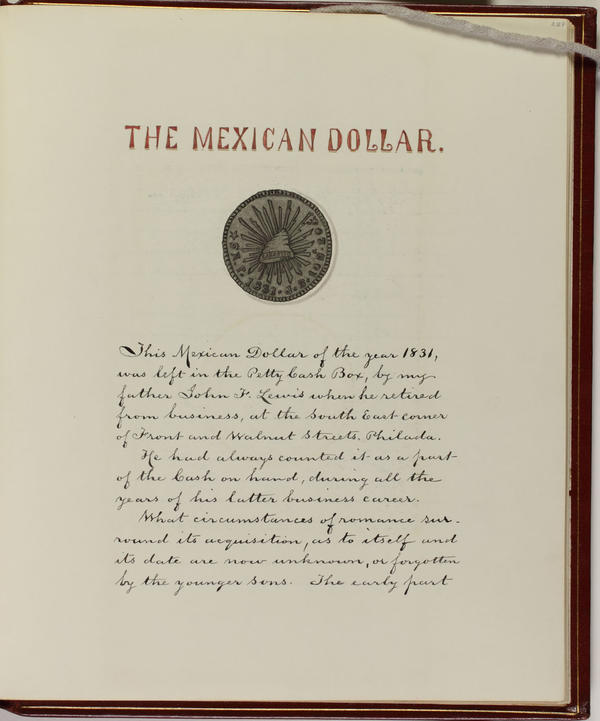 THE MEXICAN DOLLAR.
This Mexican Dollar of the year 1831,
was left in the Petty Cash Box, by my
father John F. Lewis when he retired
from business, at the South East corner
of Front and Walnut Streets. Philada.
He had always counted it as a part
of the Cash on hand, during all the
years of his latter business career.
What circumstances of romance sur-
round its acquisition, as to itself and
its date are now unknown, or forgotten
by the younger sons. The early part